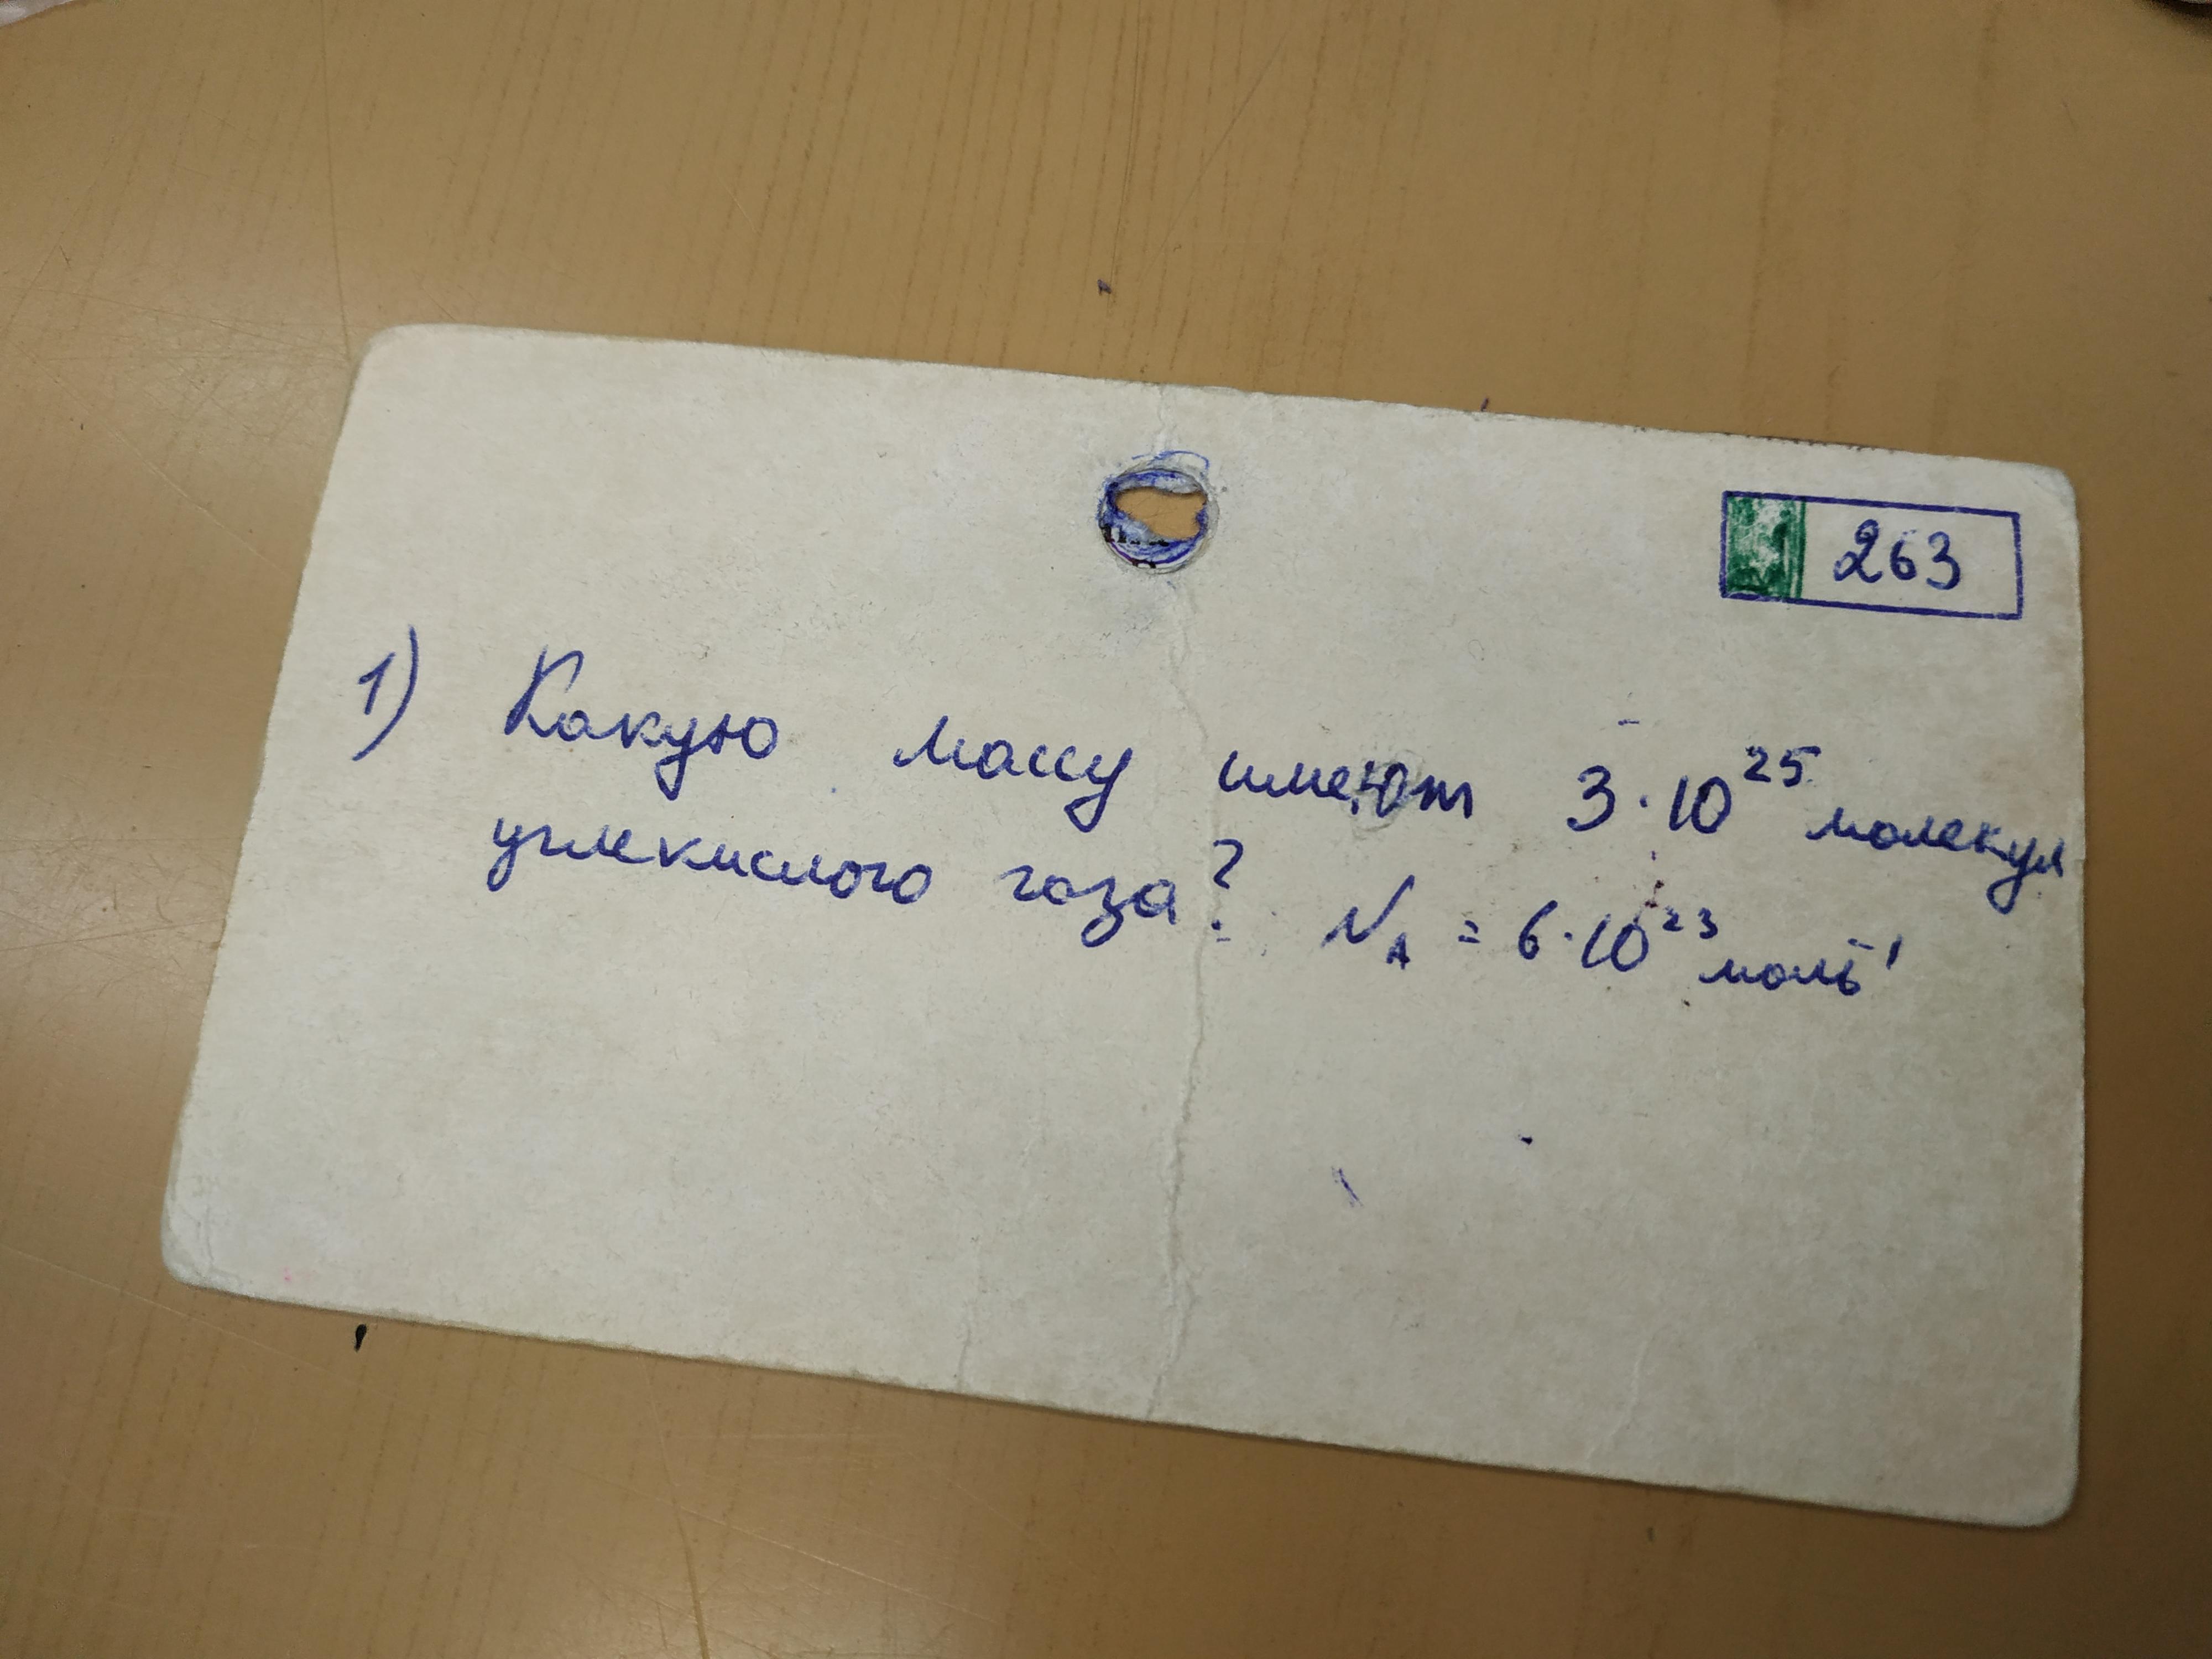 263
1) Какую массу имеют 3·10²⁵ молекул
углекислого газа? N_A = 6·10²³ моль⁻¹